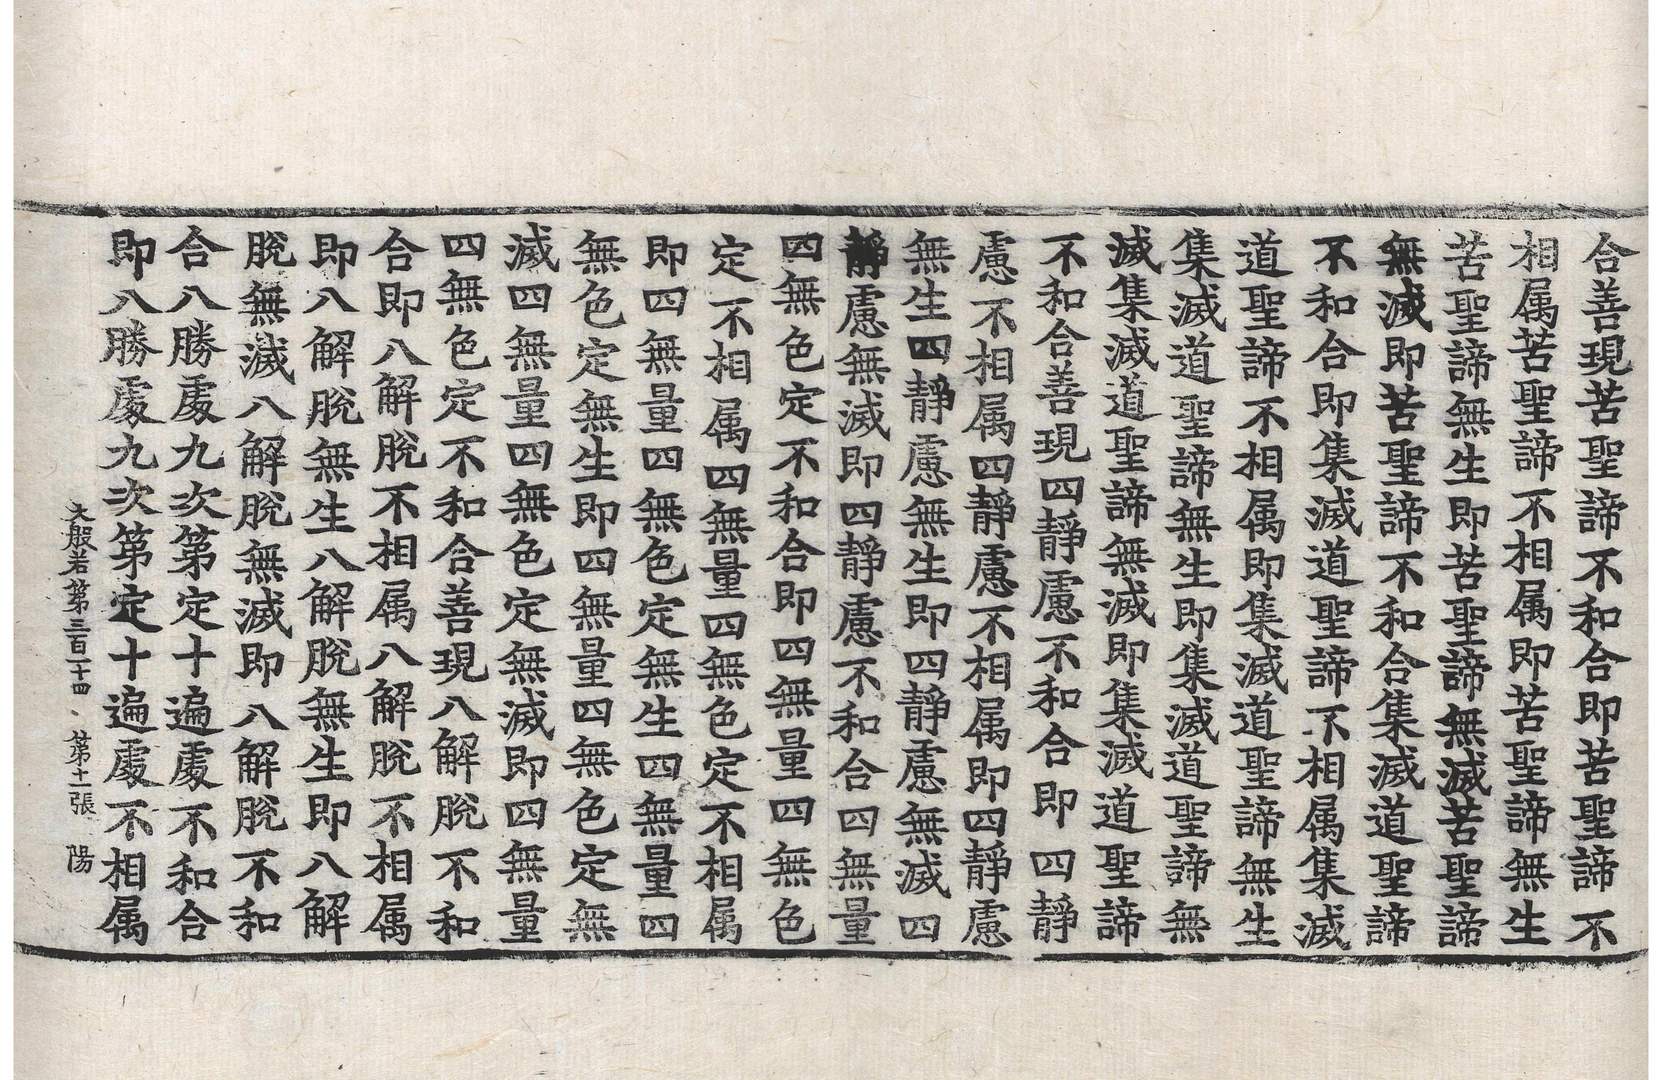 合善現苦聖諦不和合即苦聖諦不
相属苦聖諦不相属即苦聖諦無生
苦聖諦無生即苦聖諦無滅苦聖諦
無滅即苦聖諦不和合集滅道聖諦
不和合即集滅道聖諦不相属集滅
道聖諦不相属即集滅道聖諦無生
集滅道聖諦無生即集滅道聖諦無
滅集滅道聖諦無滅即集滅道聖諦
不和合善現四靜慮不和合即四靜
慮不相属四靜慮不相属即四靜慮
無生四靜慮無生即四靜慮無滅四
靜慮無滅即四靜慮不和合四無量
四無色定不和合即四無量四無色
定不相属四無量四無色定不相属
即四無量四無色定無生四無量四
無色定無生即四無量四無色定無
滅四無量四無色定無滅即四無量
四無色定不和合善現八解脫不和
合即八解脫不相属八解脫不相属
即八解脫無生八解脫無生即八解
脫無滅八解脫無滅即八解脫不和
合八勝處九次第定十遍處不和合
即八勝處九次第定十遍處不相属
大般若第三百一十四 第十一張 陽